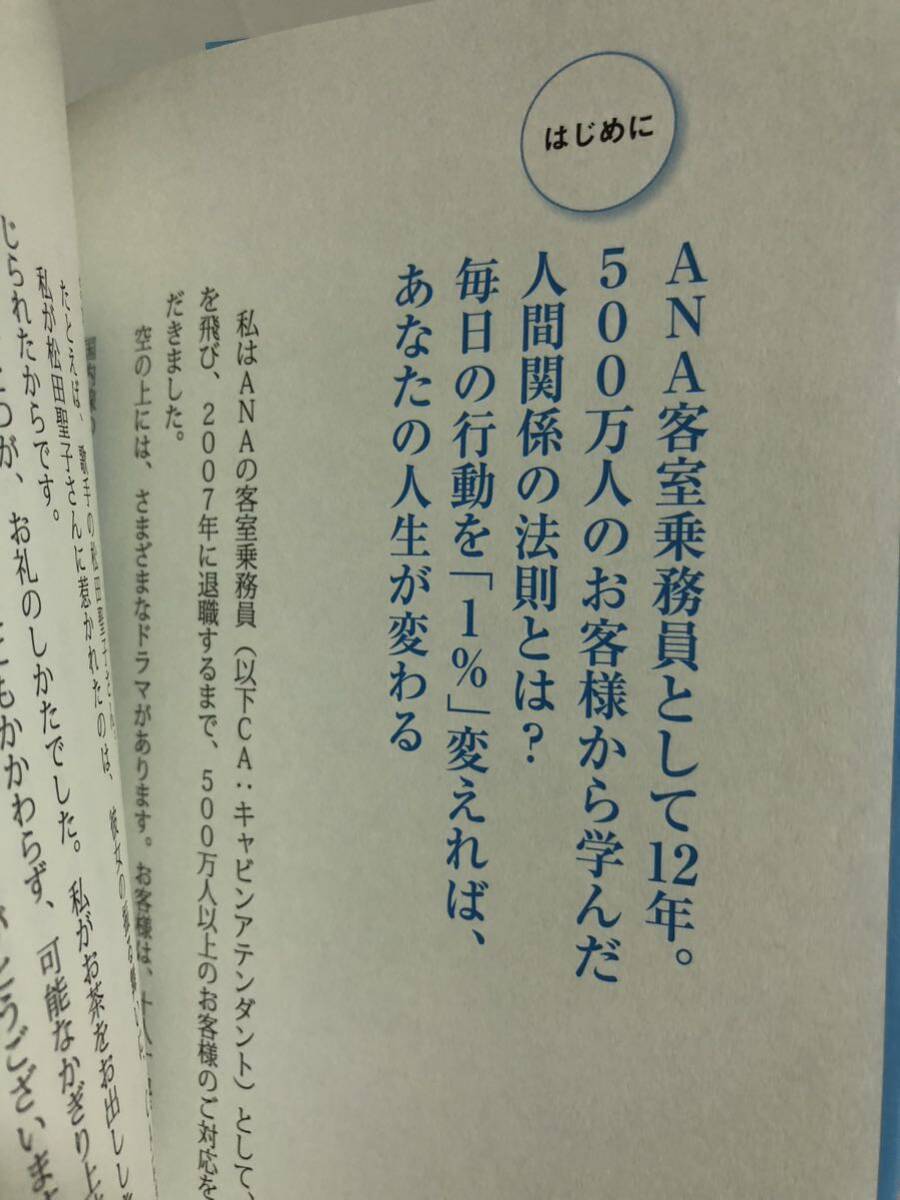 はじめに
ANA客室乗務員として12年。
500万人のお客様から学んだ
人間関係の法則とは?
毎日の行動を「1%」変えれば、
あなたの人生が変わる
私はANAの客室乗務員(以下CA:キャビンアテンダント)として、
を飛び、2007年に退職するまで、500万人以上のお客様のご対応を
だきました。
空の上には、さまざまなドラマがあります。お客様は、十人
たとえば、歌手の松田聖子さ
私が松田聖子さんに惹かれたのは、彼女の
じられたからです。
お礼のしかたでした。私がお茶をお出しし
にもかかわらず、可能なかぎり上
とうございま